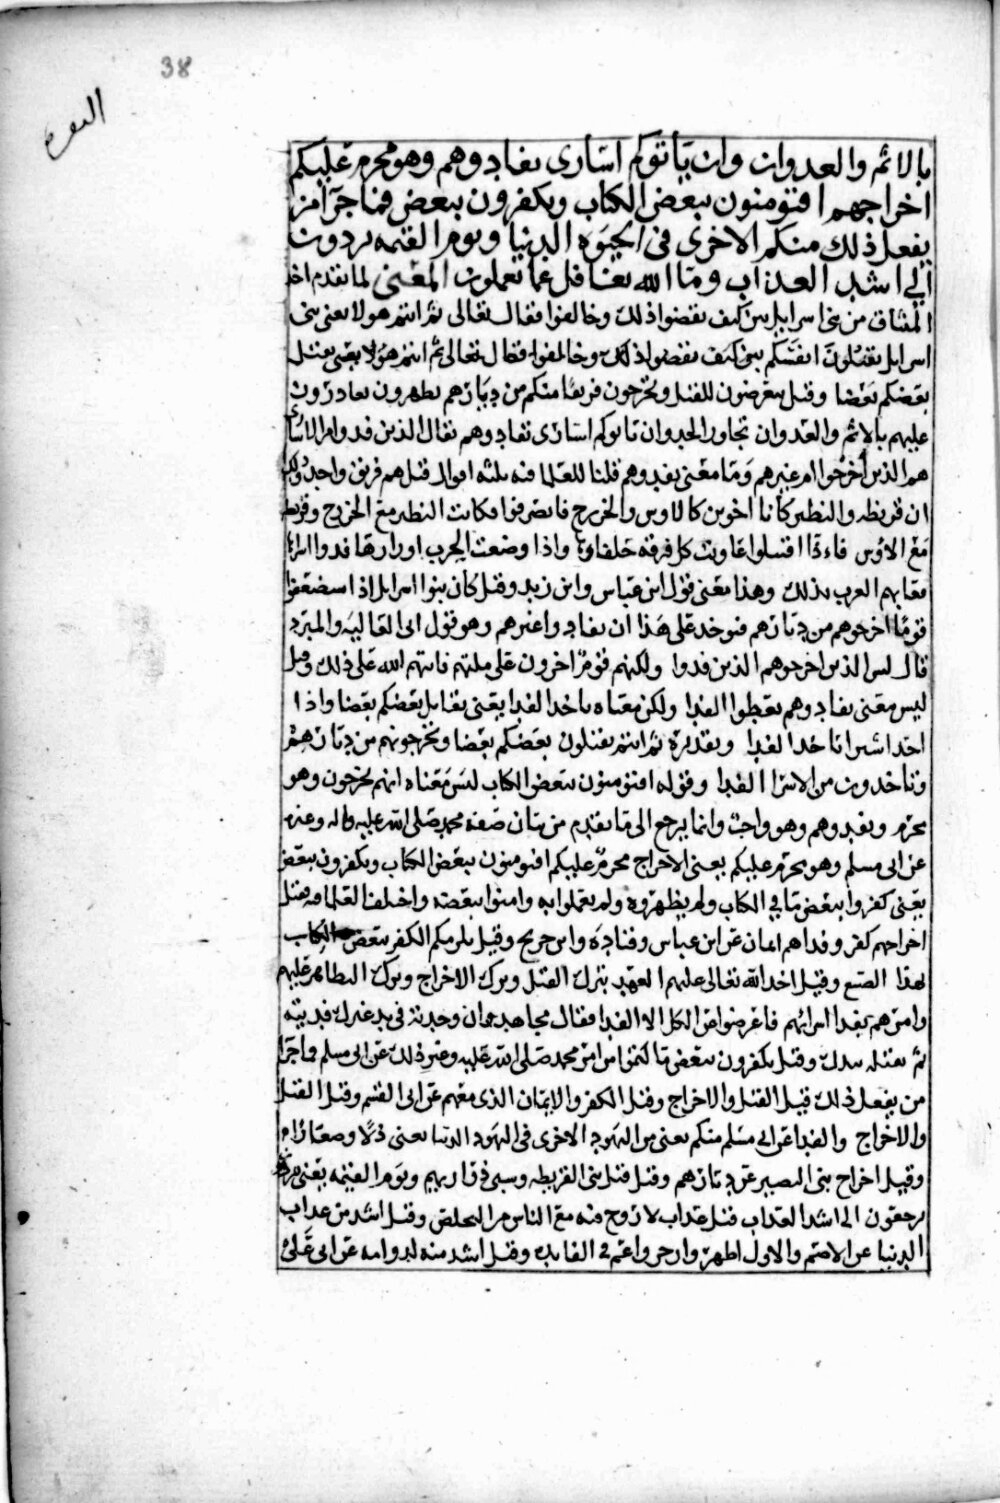 38
البقرة
بالاثم والعدوان وان يأتوكم اسارى تفادوهم وهو محرم عليكم
اخراجهم افتؤمنون ببعض الكتاب وتكفرون ببعض فما جزآ من
يفعل ذلك منكم الا خزى فى الحيوة الدنيا ويوم القيمه يردون
الى اشد العذاب وما الله بغافل عما تعملون المعنى لما تقدم اخذ
الميثاق من بنى اسرايل بين كيف نقضوا ذلك وخالفوا فقال تعالى ثم انتم هولا يعنى بنى
اسرايل تقتلون انفسكم بين كيف نقضوا ذلك وخالفوا فقال تعالى ثم انتم هولا يعنى يقتل
بعضكم بعضا وقيل تتعرضون للقتل وتخرجون فريقا منكم من ديارهم تظهرون تعاونون
عليهم بالاثم والعدوان تجاوز الحد وان ياتوكم اسارى تفادوهم يقال الذين فدوا من الاسارى
هم الذين أخرجوا ام غيرهم وما معنى تفدوهم قلنا للعلما فيه ثلثه اقوال قيل هم فريق واحد وذلك
ان قريظه والنظير كانا اخوين كالاوس والخزرج فافترقوا فكانت النظير مع الخزرج وقريظه
مع الاوس فاذا اقتتلوا عاونت كل فرقه حلفاءها واذا وضعت الحرب اوزارها فدوا اسراها
فعابهم العرب بذلك وهذا معنى قول ابن عباس وابن زيد وقيل كان بنوا اسرايل اذا استضعفوا
قوما اخرجوهم من ديارهم فيوخذ على هذا ان تفادوا غيرهم وهو قول ابى العاليه والمبرد
قال ليس الذين اخرجوهم الذين فدوا ولكنهم قوم اخرون على ملتهم فاتهم الله على ذلك وقيل
ليس معنى تفادوهم تعطوا الفدا ولكن معناه ياخذ الفدا يعنى يقاتل بعضكم بعضا واذا
اخذ اسيرا ناخذ الفدا وتقديره ثم انتم تقتلون بعضكم بعضا وتخرجونهم من ديارهم
وتاخذون من الاسرا الفدا وقوله افتؤمنون ببعض الكتاب ليس معناه انهم يخرجون وهو
محرم وتفدوهم وهو واجب وانما يرجع الى ما تقدم من بيان صفة محمد صلى الله عليه واله وغيره
عن ابى مسلم وهو محرم عليكم يعنى الاخراج محرم عليكم افتؤمنون ببعض الكتاب وتكفرون ببعض
يعنى كفروا ببعض ما في الكتاب ولم يظهروه ولم يعملوا به وامنوا ببعضه واختلف العلما فيه فقيل
اخراجهم كفر وفداهم ايمان عن ابن عباس وقتاده وابن جريج وقيل يلزمكم الكفر ببعض الكتاب
لهذا الصنع وقيل اخذ الله تعالى عليهم العهد بترك القتل وترك الاخراج وترك التظاهر عليهم
وامرهم بفدا اسرائهم فاعرضوا عن الكل الا الفدا فقال مجاهد ان وجدته في يد غيرك فديته
ثم تقتله بيدك وقيل تكفرون ببعض ما كتموا من امر محمد صلى الله عليه وغير ذلك عن ابى مسلم فما جزا
من يفعل ذلك قيل القتل والاخراج وقيل الكفر والايمان الذى معهم عن ابى القسم وقيل القتل
والاخراج والفدا عن ابى مسلم منكم يعنى من اليهود الا خزى فى اليهود الدنيا يعنى ذلا وصغارا
وقيل اخراج بنى النضير عن ديارهم وقيل قتل بنى القريظه وسبى ذراريهم ويوم القيمه يعنى
يرجعون الى اشد العذاب قيل عذاب لا روح فيه مع الناس من التخلص وقيل اشد من عذاب
الدنيا عن الاصم والاول اظهر وارجح واعم في الفايده وقيل اشد منه لدوامه عن ابى على